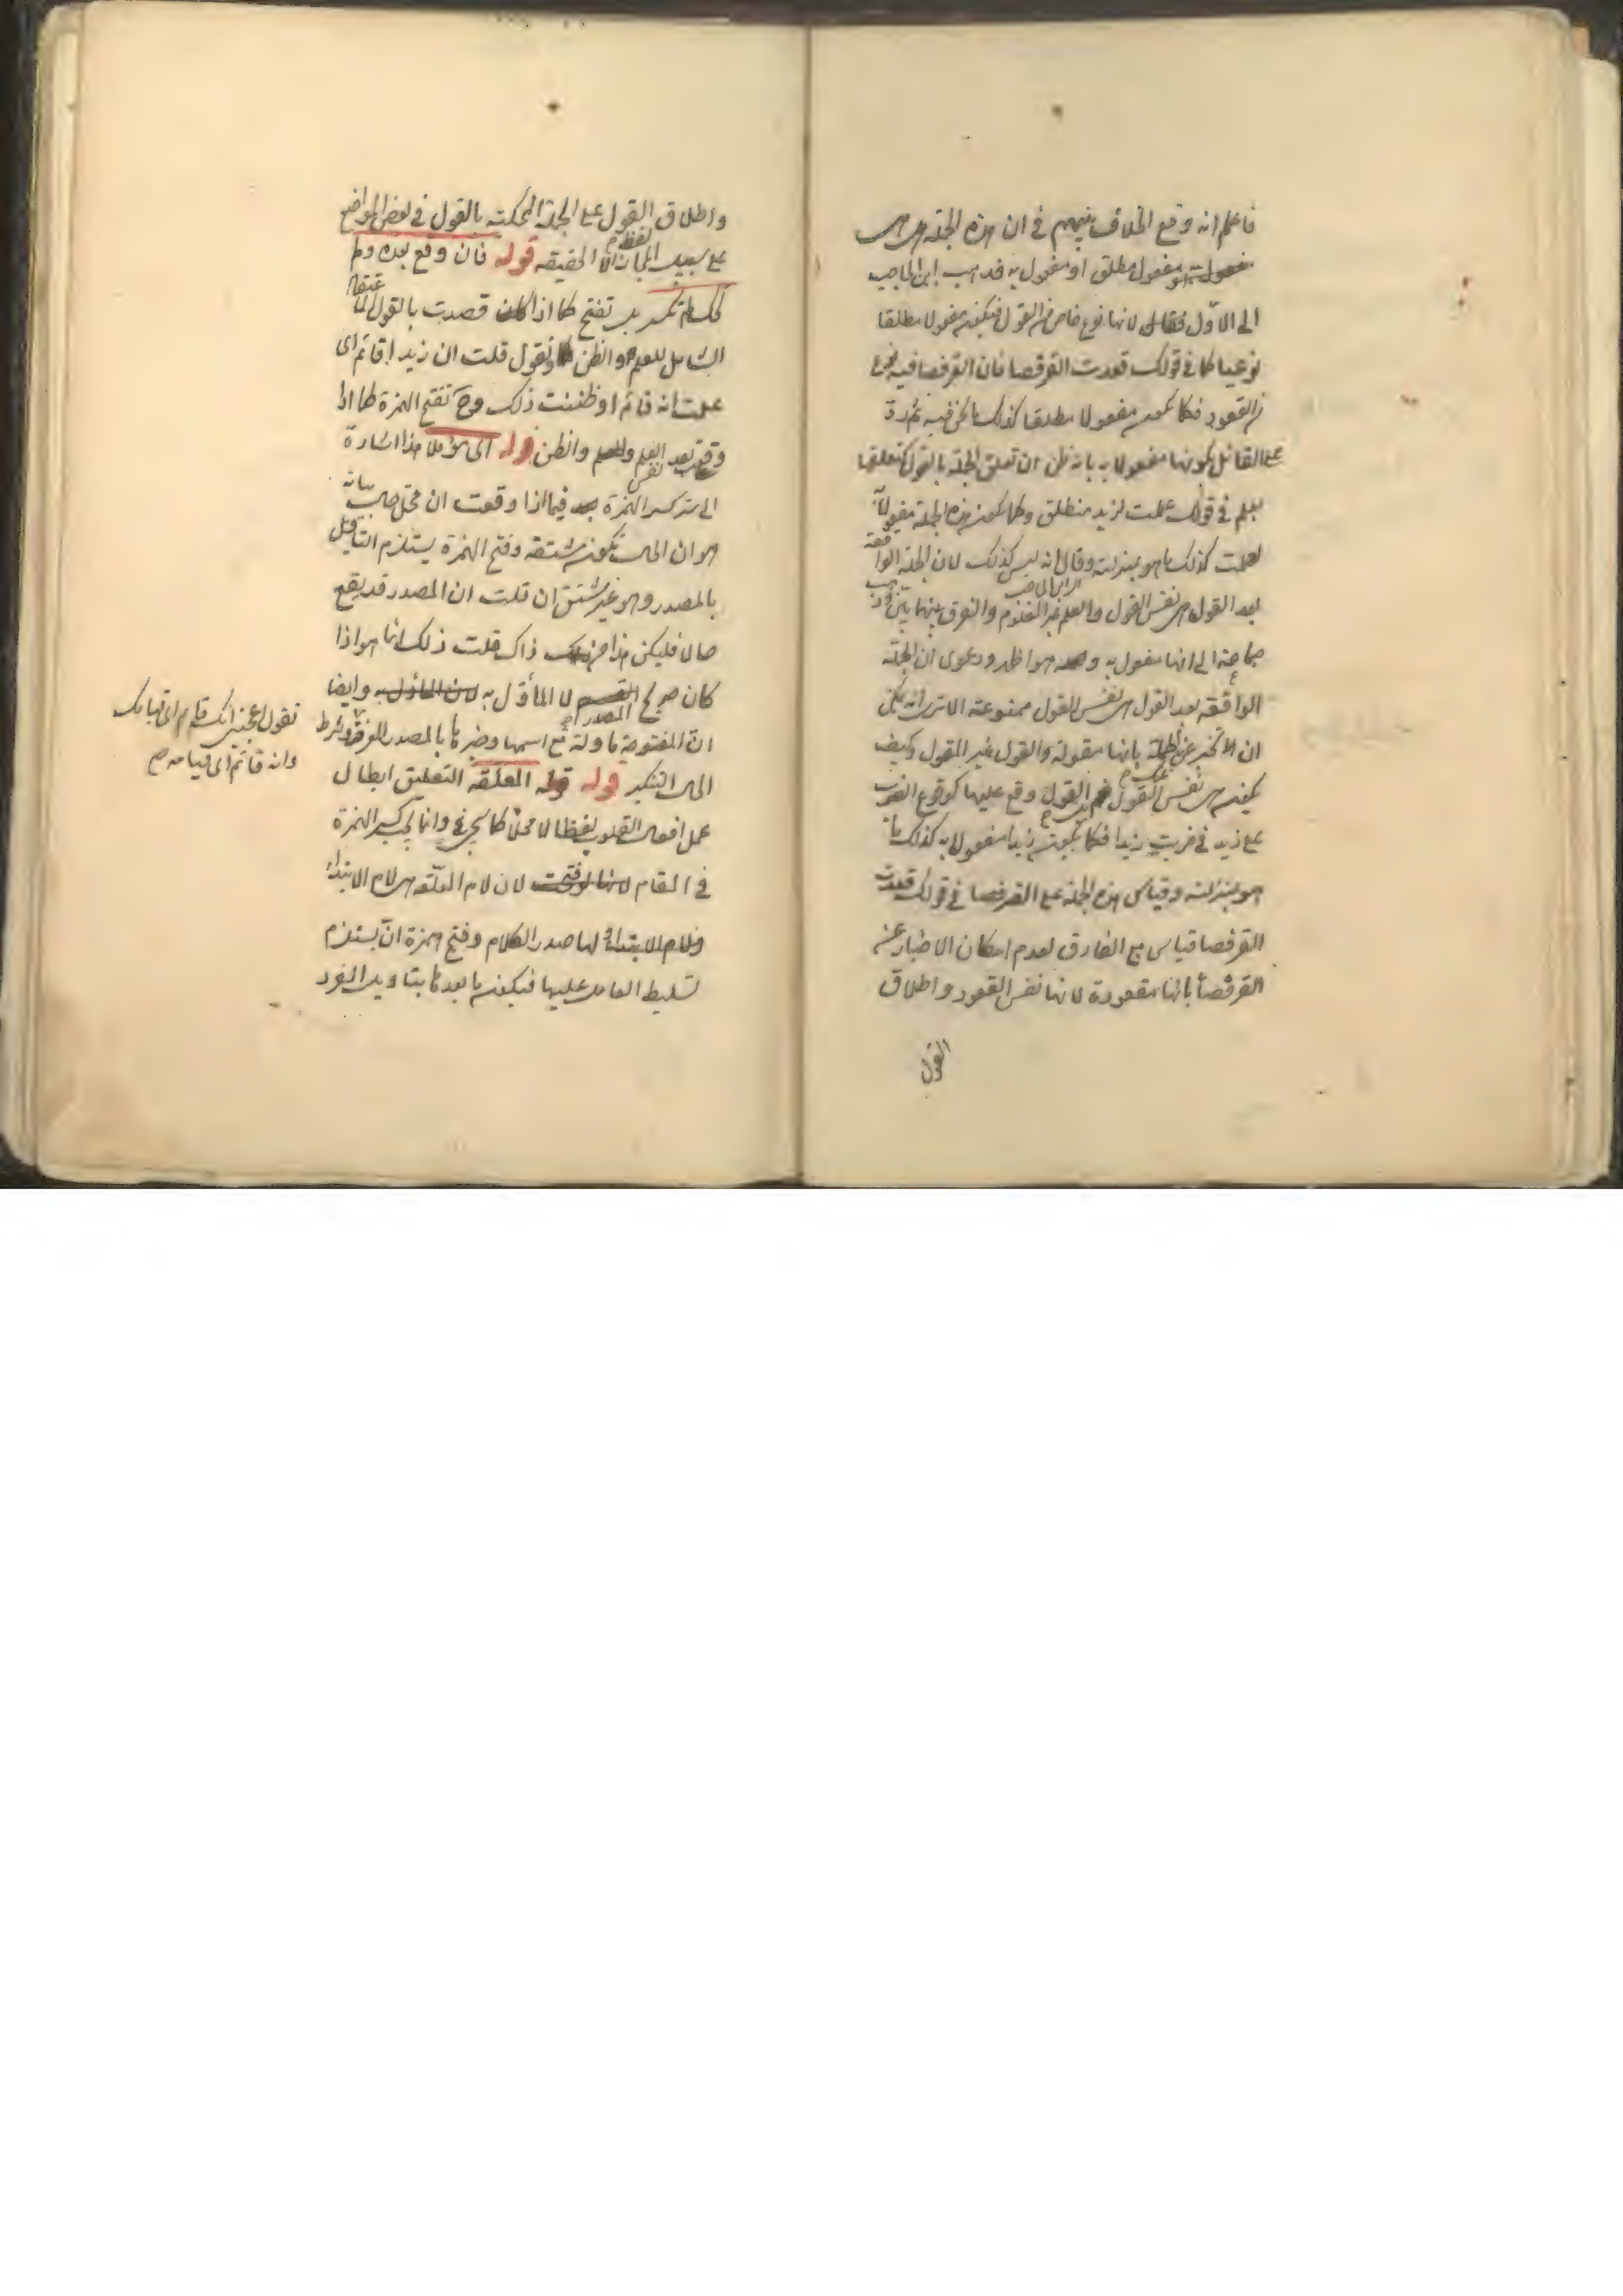 فاعلم انه وقع الخلاف بينهم في ان هذه الجملة هل هي
مفعول مطلق او مفعول به فذهب ابن الحاجب
الى الاول فقال لانها نوع خاص من القول فيكون مفعولا مطلقا
نوعيا كما في قولك قعدت القرفصا فان القرفصا فيه نوع
من القعود فكما يكون مفعولا مطلقا كذلك ما نحن فيه ثم رد
على القائل بكونها مفعولا به بانه ظن ان تعلق الجملة بالقول كتعلقها
بعلم في قولك علمت لزيد منطلق وكما يكون هذه الجملة مفعولا
لعلمت كذلك ما هو بمنزلته وقال انه ليس كذلك لان الجملة الواقعة
بعد القول هي نفس القول والعلم غير المعلوم والفرق بينهما بين وذهب
ابن الحاجب
جماعة الى انها مفعول به وهو اظهر ودعوى ان الجملة
الواقعة بعد القول هي نفس القول ممنوعة الا ترى انه يمكن
ان الاخبار عن الجملة بانها مقولة والقول غير المقول وكيف
يكون هي نفس القول القول وقع عليها كوقوع الضرب
على زيد في ضربت زيدا فكما يكون زيدا مفعولا به كذلك ما
هو بمنزلته وقياس هذه الجملة على القرفصا في قولك قعدت
القرفصا قياس مع الفارق لعدم امكان الاخبار عن
القرفصا بانها مقعودة لانها نفس القعود واطلاق
القول
واطلاق القول على الجملة المحكية بالقول في بعض المواضع
على سبيل المجاز لا الحقيقة قوله فان وقع بعده
تكسر بل تفتح كما اذا قصدت بالقول
الشامل للعلم والظن تقول قلت ان زيدا قائم اى
علمت انه قائم او ظننت ذلك وح تفتح الهمزة كما اذا
وقعت بعد نفس العلم والظن قوله هذا اشارة
الى سر كسر الهمزة فيما اذا وقعت ان محل حال بيانه
هو ان الحال تكون مشتقة وفتح الهمزة يستلزم التاويل
بالمصدر وهو غير مشتق ان قلت ان المصدر قد يقع
حالا فليكن هذا من ذاك قلت ذلك انما هو اذا
كان صريح المصدر لا المأول به وايضا
ان المفتوحة ماولة مع اسمها وخبرها بالمصدر المعرفة وشرط
الحال التنكير قوله المعلقة التعليق ابطال
عمل افعال القلوب لفظا لا محلا كما يجئ وانما يجب كسر الهمزة
في المقام لان لام المعلقة هي لام الابتداء
ولام الابتداء لها صدر الكلام وفتح همزة ان يستلزم
تسليط العامل عليها فيكون ما بعدها بتاويل المفرد
تقول اعجبني انك قائم اى قيامك
وانه قائم اى قيامه صح